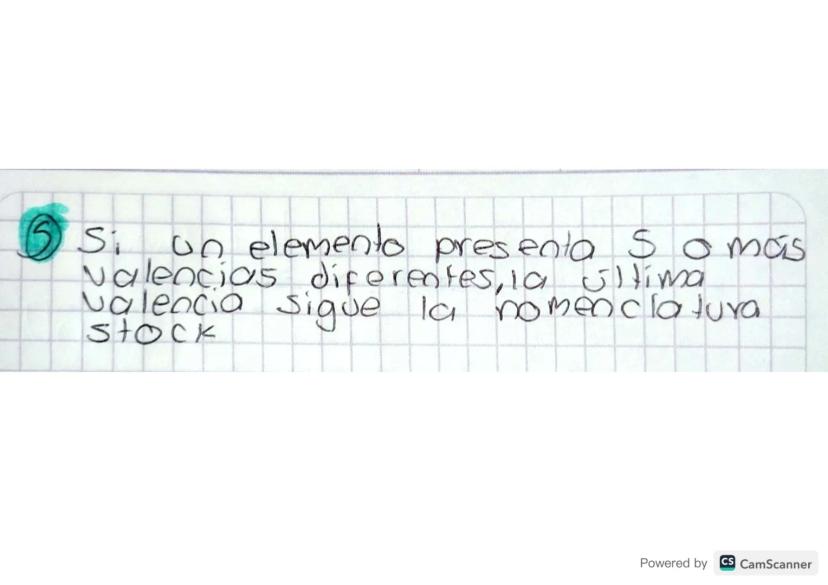 5 Si un elemento presenta 5 o más
valencias diferentes, la última
valencia sigue la nomenclatura
stock
Powered by CS CamScanner